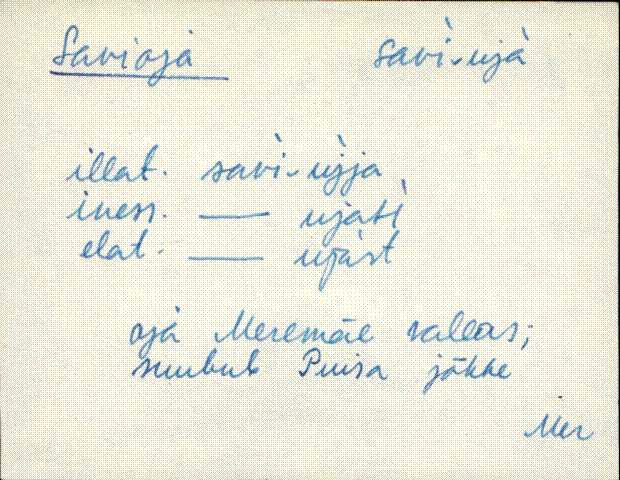 Savioja savì-ujà
illat. savì-ùjja
iness. —— ujatì
elat. —— ujàst
oja Meremäe vallas;
suubub Piusa jõkke
Mer